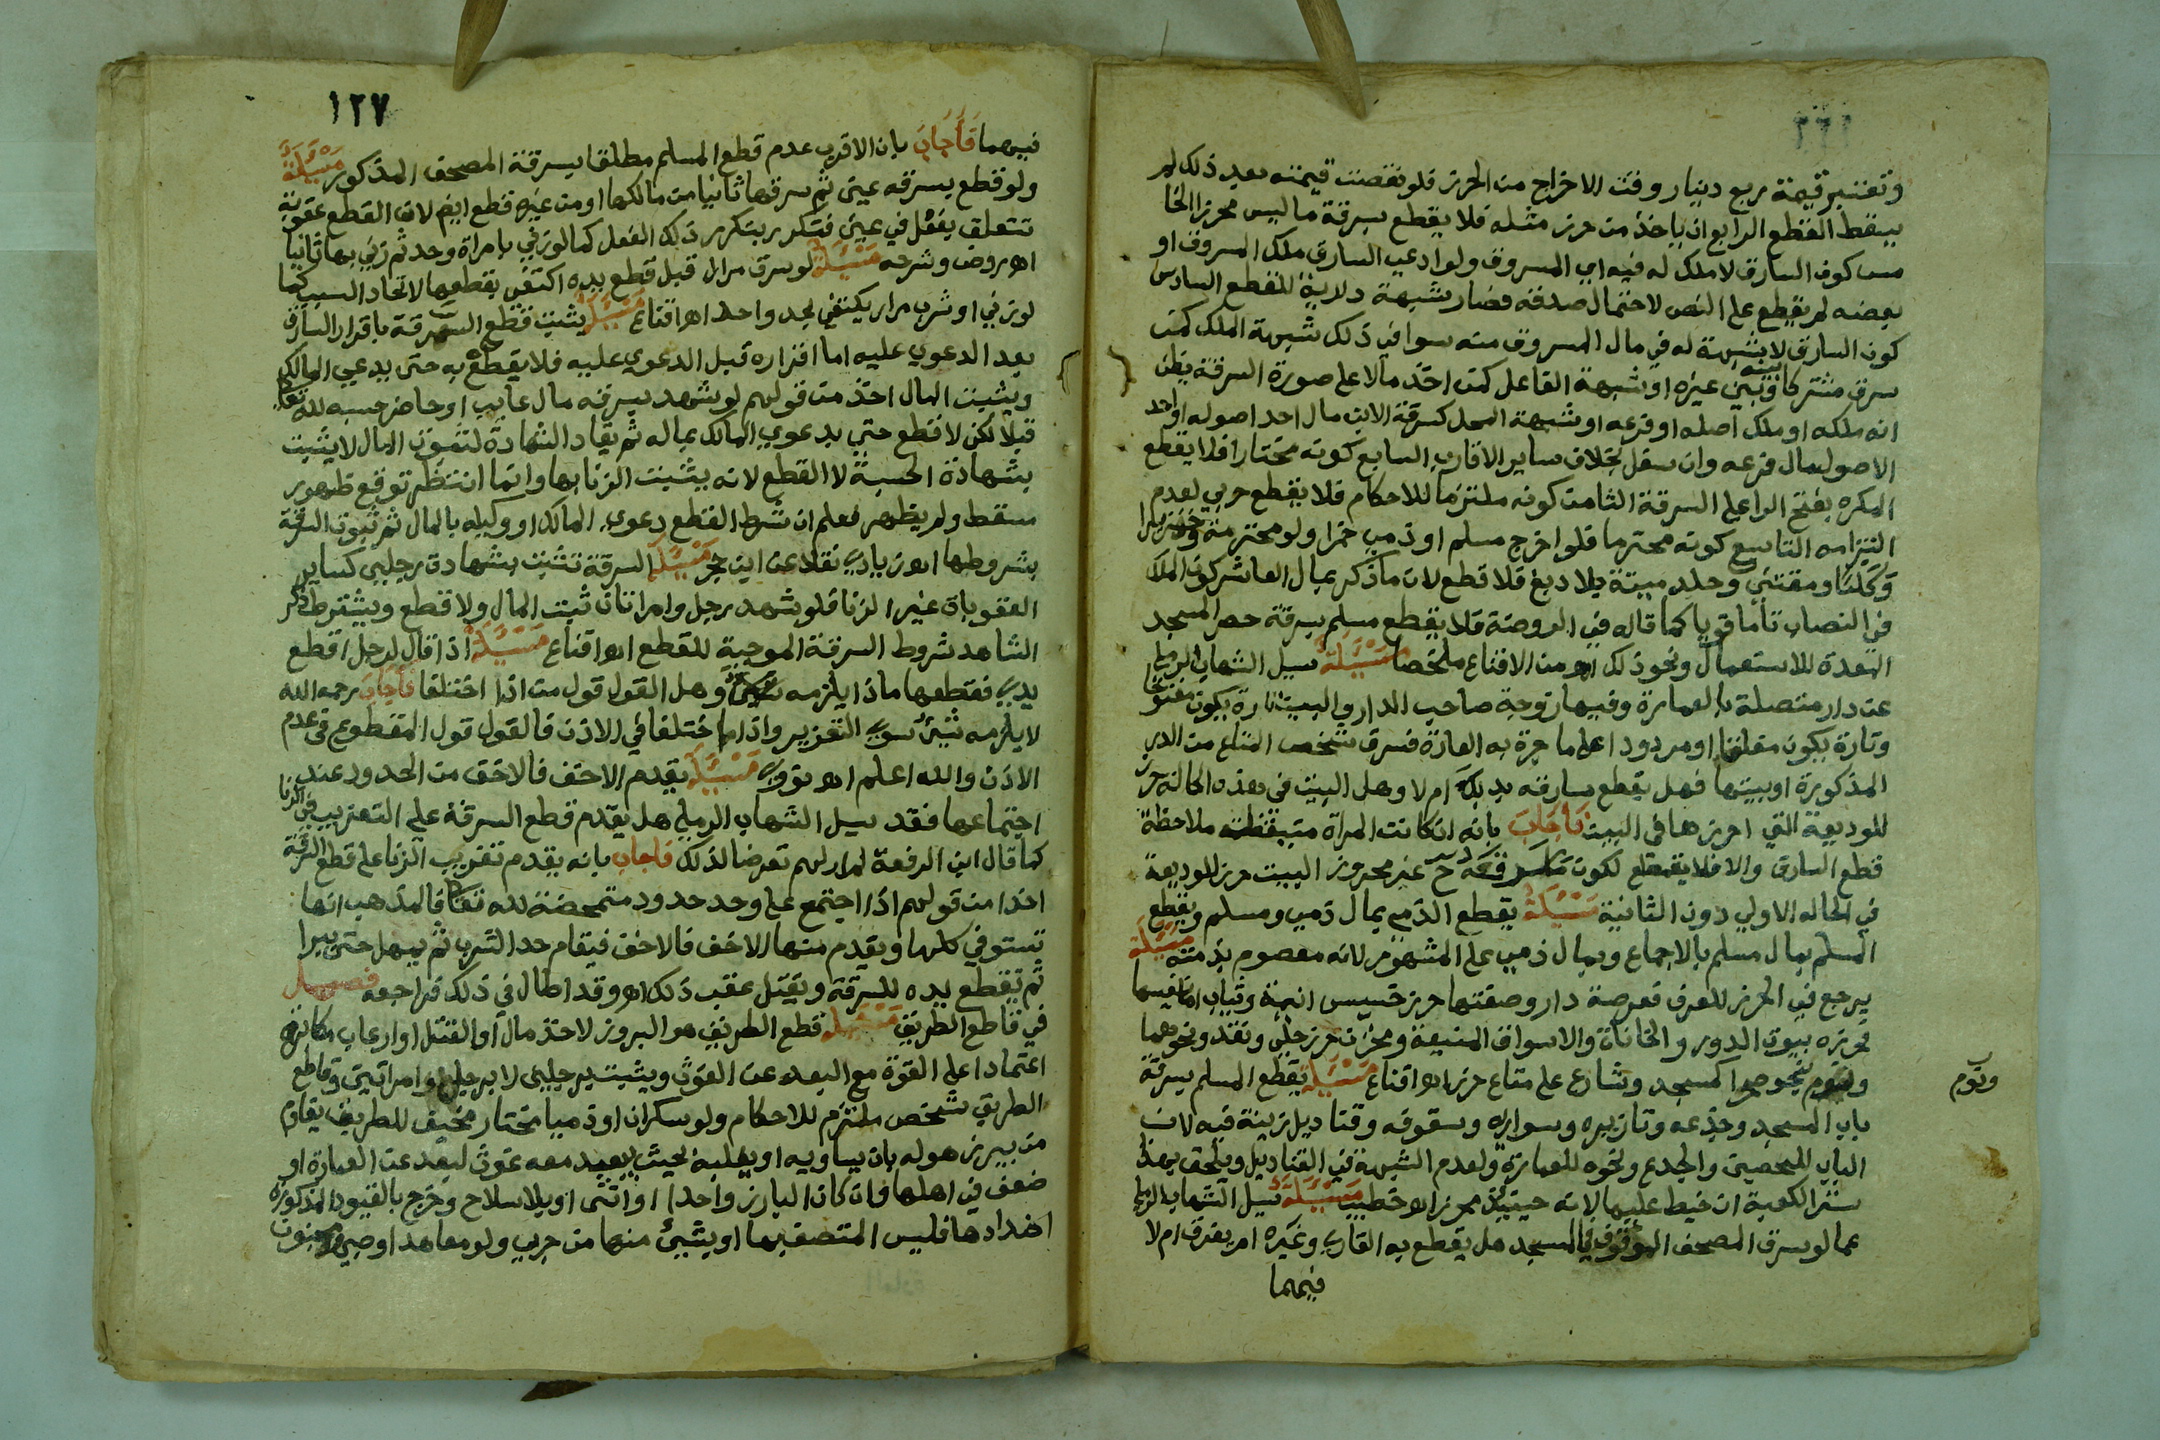 وتعتبر قيمة ربع دينار وقت الاخراج من الحرز فلو نقصت قيمته بعد ذلك لم
يسقط القطع الرابع ان ياخذ من حرز مثله فلا يقطع بسرقة ما ليس محرزا الخا
مس كون السارق لا ملك له فيه اي المسروق ولو ادعي السارق ملك المسروق او
بعضه لم يقطع على النص لاحتمال صدقه فصار شبهة دارية للقطع السادس
كون السارق لا شبهة له في مال المسروق منه سوا في ذلك شبهة الملك كمن
سرق مشتركا بينه وبين غيره او شبهة الفاعل كمن اخذ مالا على صورة السرقة يظن
انه ملكه او ملك اصله او فرعه او شبهة المحل كسرقة الابن مال احد اصوله او احد
الاصول مال فرعه وان سفل بخلاف ساير الاقارب السابع كونه مختارا فلا يقطع
المكره بفتح الرا على السرقة الثامن كونه ملتزما للاحكام فلا يقطع حربي لعدم
التزامه التاسع كونه محترما فلو اخرج مسلم او ذمي خمرا ولو محترمة وخنزيرا
وكلبا ومقتني وجلد ميتة بلا دبغ فلا قطع لان ما ذكر بمال العاشر كون الملك
في النصاب تاما قويا كما قاله في الروضة فلا يقطع مسلم بسرقة حصر المسجد
المعدة للاستعمال ونحو ذلك اه من الاقناع ملخصا مسئلة سيل الشهاب الرملي
عن دار متصلة بالعمارة وفيها زوجة صاحب الدار والبيت تارة يكون مفتوحا
وتارة يكون مغلقا او مردودا على ما جرة به العادة فسرق شخص المتاع من الدار
المذكورة او بيتها فهل يقطع سارقه بذلك ام لا وهل البيت في هذه الحالة حرز
للوديعة التي احرزها في البيت فاجاب بانه ان كانت المراة متيقظة ملاحظة
قطع السارق والا فلا يقطع لكون ح غير محروز البيت حرز للوديعة
في الحاله الاولي دون الثانية مسئلة يقطع الذمي بمال ذمي ومسلم ويقطع
المسلم بمال مسلم بالاجماع وبمال ذمي على المشهور لانه معصوم بذمته مسئلة
يرجع في الحرز للعرف فعرصة دار وصفتها حرز خسيس انية وثياب اما نفيسها
فحرزه بيوت الدور والخانات والاسواق المنيعة ومخزن حرز حلي ونقد ونحوهما
ونوم بنحو صحرا كمسجد وشارع على متاع حرز اه اقناع مسئلة يقطع المسلم بسرقة
ونوم
باب المسجد وجذعه وتازيره وسواريه وسقوفه وقناديل زينة فيه لان
الباب للتحصين والجدع ونحوه للعمارة ولعدم الشبهة في القناديل ويلحق بهذا
ستر الكعبة ان خيط عليها لانه حينئذ محرز اه خطيب مسئلة سيل الشهاب الرملي
عما لو سرق المصحف الموقوف في المسجد هل يقطع به القاري وغيره ام يفترق ام لا
فيهما
١٢٧
فيهما فاجاب بان الاقرب عدم قطع المسلم مطلقا بسرقة المصحف المذكور مسئلة
ولو قطع بسرقه عين ثم سرقها ثانيا من مالكها او من غيره قطع ايض لان القطع عقوبة
تتعلق بفعل في عين فتكرر بتكرر ذلك الفعل كما لو زني بامراة وحد ثم زني بها ثانيا
اه روض وشرحه مسئلة لو سرق مرارا قبل قطع يده اكتفي بقطعها لاتحاد السبب كما
لو زني او شرب مرارا يكتفي بحد واحد اه اقناع مسئلة يثبت قطع السرقة باقرار السارق
بعد الدعوي عليه اما اقراره قبل الدعوي عليه فلا يقطع به حتى يدعي المالك
ويثبت المال اخذ من قولهم لو شهد بسرقه مال غايب او حاضر حسبه لله تعالى
قبلا لكن لا قطع حتي يدعوي المالك بماله ثم يعاد الشهادة لثبوت المال لا يثبت
بشهادة الحسبة لا القطع لانه يثبت الزنا بها وانما انتظر توقع ظهور
مسقط ولم يظهر فعلم ان شرط القطع دعوي المالك او وكيله بالمال ثم ثبوت السرقة
بشروطها اه زيادي نقلا عن ابن حجر مسئلة السرقة تثبت بشهادة رجلين كساير
العقوبات غير الزنا فلو شهد رجل وامراتان ثبت المال ولا قطع ويشترط ذكر
الشاهد شروط السرقة الموجبة للقطع اه اقناع مسئلة اذا قال لرجل اقطع
يدي فقطعها ماذا يلزمه وهل القول قول من اذا اختلفا فاجاب رحمه الله
لا يلزمه شئ سوي التعزير واذا اختلفا في الاذن فالقول قول المقطوع في عدم
الاذن والله اعلم اه نووي مسئلة يقدم الاخف فالاخف من الحدود عند
اجتماعها فقد سيل الشهاب الرملي هل يقدم قطع السرقة على التغريب في الزنا
كما قال ابن الرفعة لم ار لهم تعرضا لذلك فاجاب بانه يقدم تغريب الزنا على قطع السرقة
اخذا من قولهم اذا اجتمع على وحد حدود متمحضة لله تعالى فالمذهب انها
تستوفي كلها ويقدم منها الاخف فالاخف فيقام حد الشرب ثم يمهل حتى يبرا
ثم تقطع يده للسرقة ويقتل عقب ذلك اه وقد اطال في ذلك فراجعه فصل
في قاطع الطريق مسئلة قطع الطريق هو البروز لاخذ مال او القتل او ارعاب مكابرة
اعتمادا على القوة مع البعد عن الغوث ويثبت برجلين لا برجل وامراتين وقاطع
الطريق شخص ملتزم للاحكام ولو سكران او ذميا مختار مخيف للطريق يقاوم
من يبرز هو له بان يساويه او يغلبه بحيث يبعد معه غوث لبعد عن العمارة او
ضعف في اهلها وان كان البارز واحدا او انثى او بلا سلاح وخرج بالقيود المذكورة
اضدادها فليس المتصف بها او بشئ منها من حربي ولو معاهد او صبي ومجنون